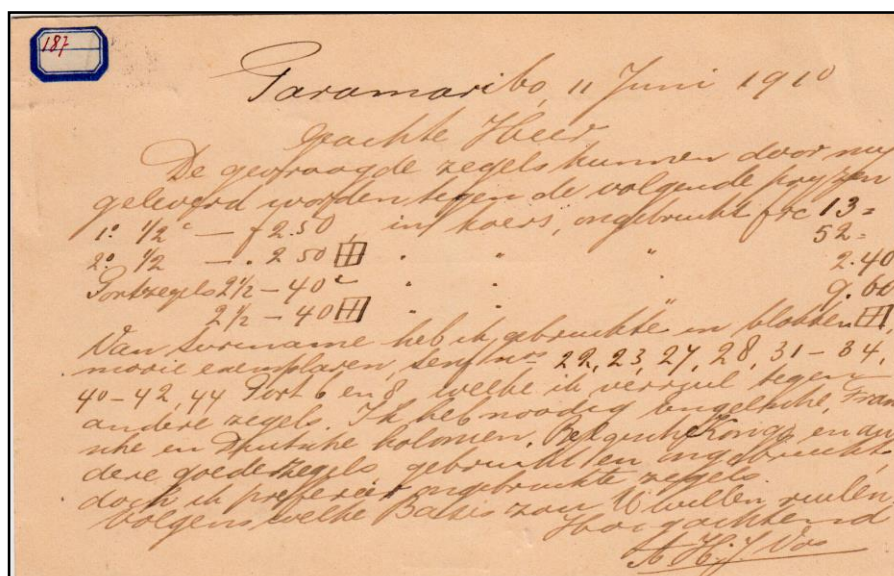 187
Paramaribo, 11 Juni 1910
Geachte Heer
De gevraagde zegels kunnen door mij
geleverd worden tegen de volgende pryzen
1º ½ c — f 2.50, in koers, ongebruikt frc 13=
2º ½ — . 2.50 ⊞ " " " 52=
Portzegels 2½ – 40 c " " " 2.40
2½ – 40 ⊞ " " " 9.60
Van Suriname heb ik gebruikte in blokken ⊞
mooie exemplaren, Senf nos 22, 23, 27, 28, 31 – 34,
40 – 42, 44 Port 6 en 8, welke ik verruil tegen
andere zegels. Ik heb noodig Engelsche, Fran
sche en Duitsche kolonien, Belgisch Kongo en an
dere goede zegels gebruikt en ongebruikt,
doch ik prefereer ongebruikte zegels.
Volgens welke Basis zou U willen ruilen
Hoogachtend
H. J. Vos